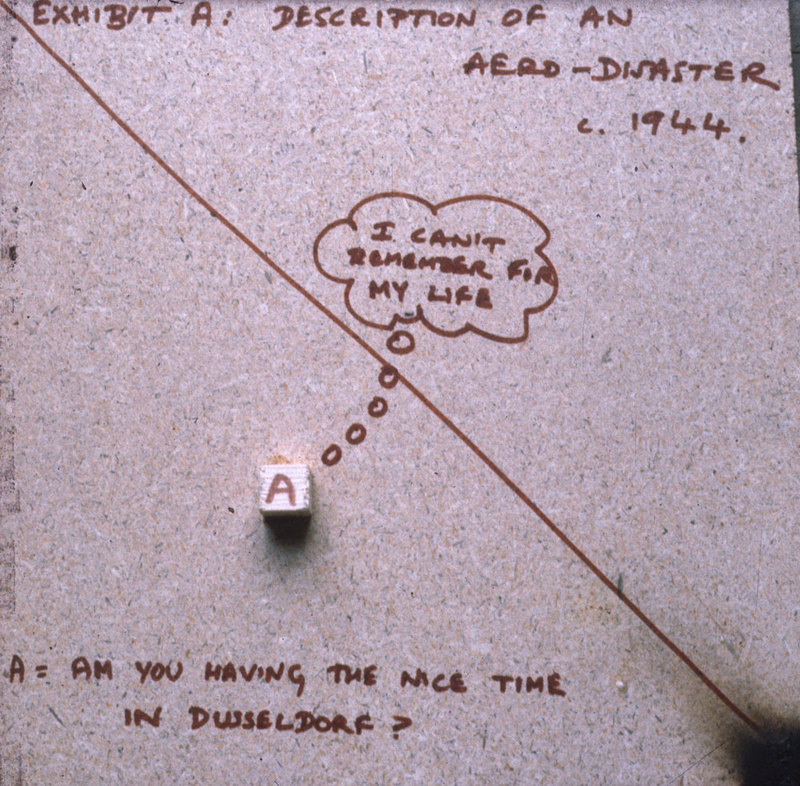 EXHIBIT A: DESCRIPTION OF AN
AERO-DISASTER
c. 1944.
I CAN'T
REMEMBER FOR
MY LIFE
A
A = AM YOU HAVING THE NICE TIME
IN DUSSELDORF?